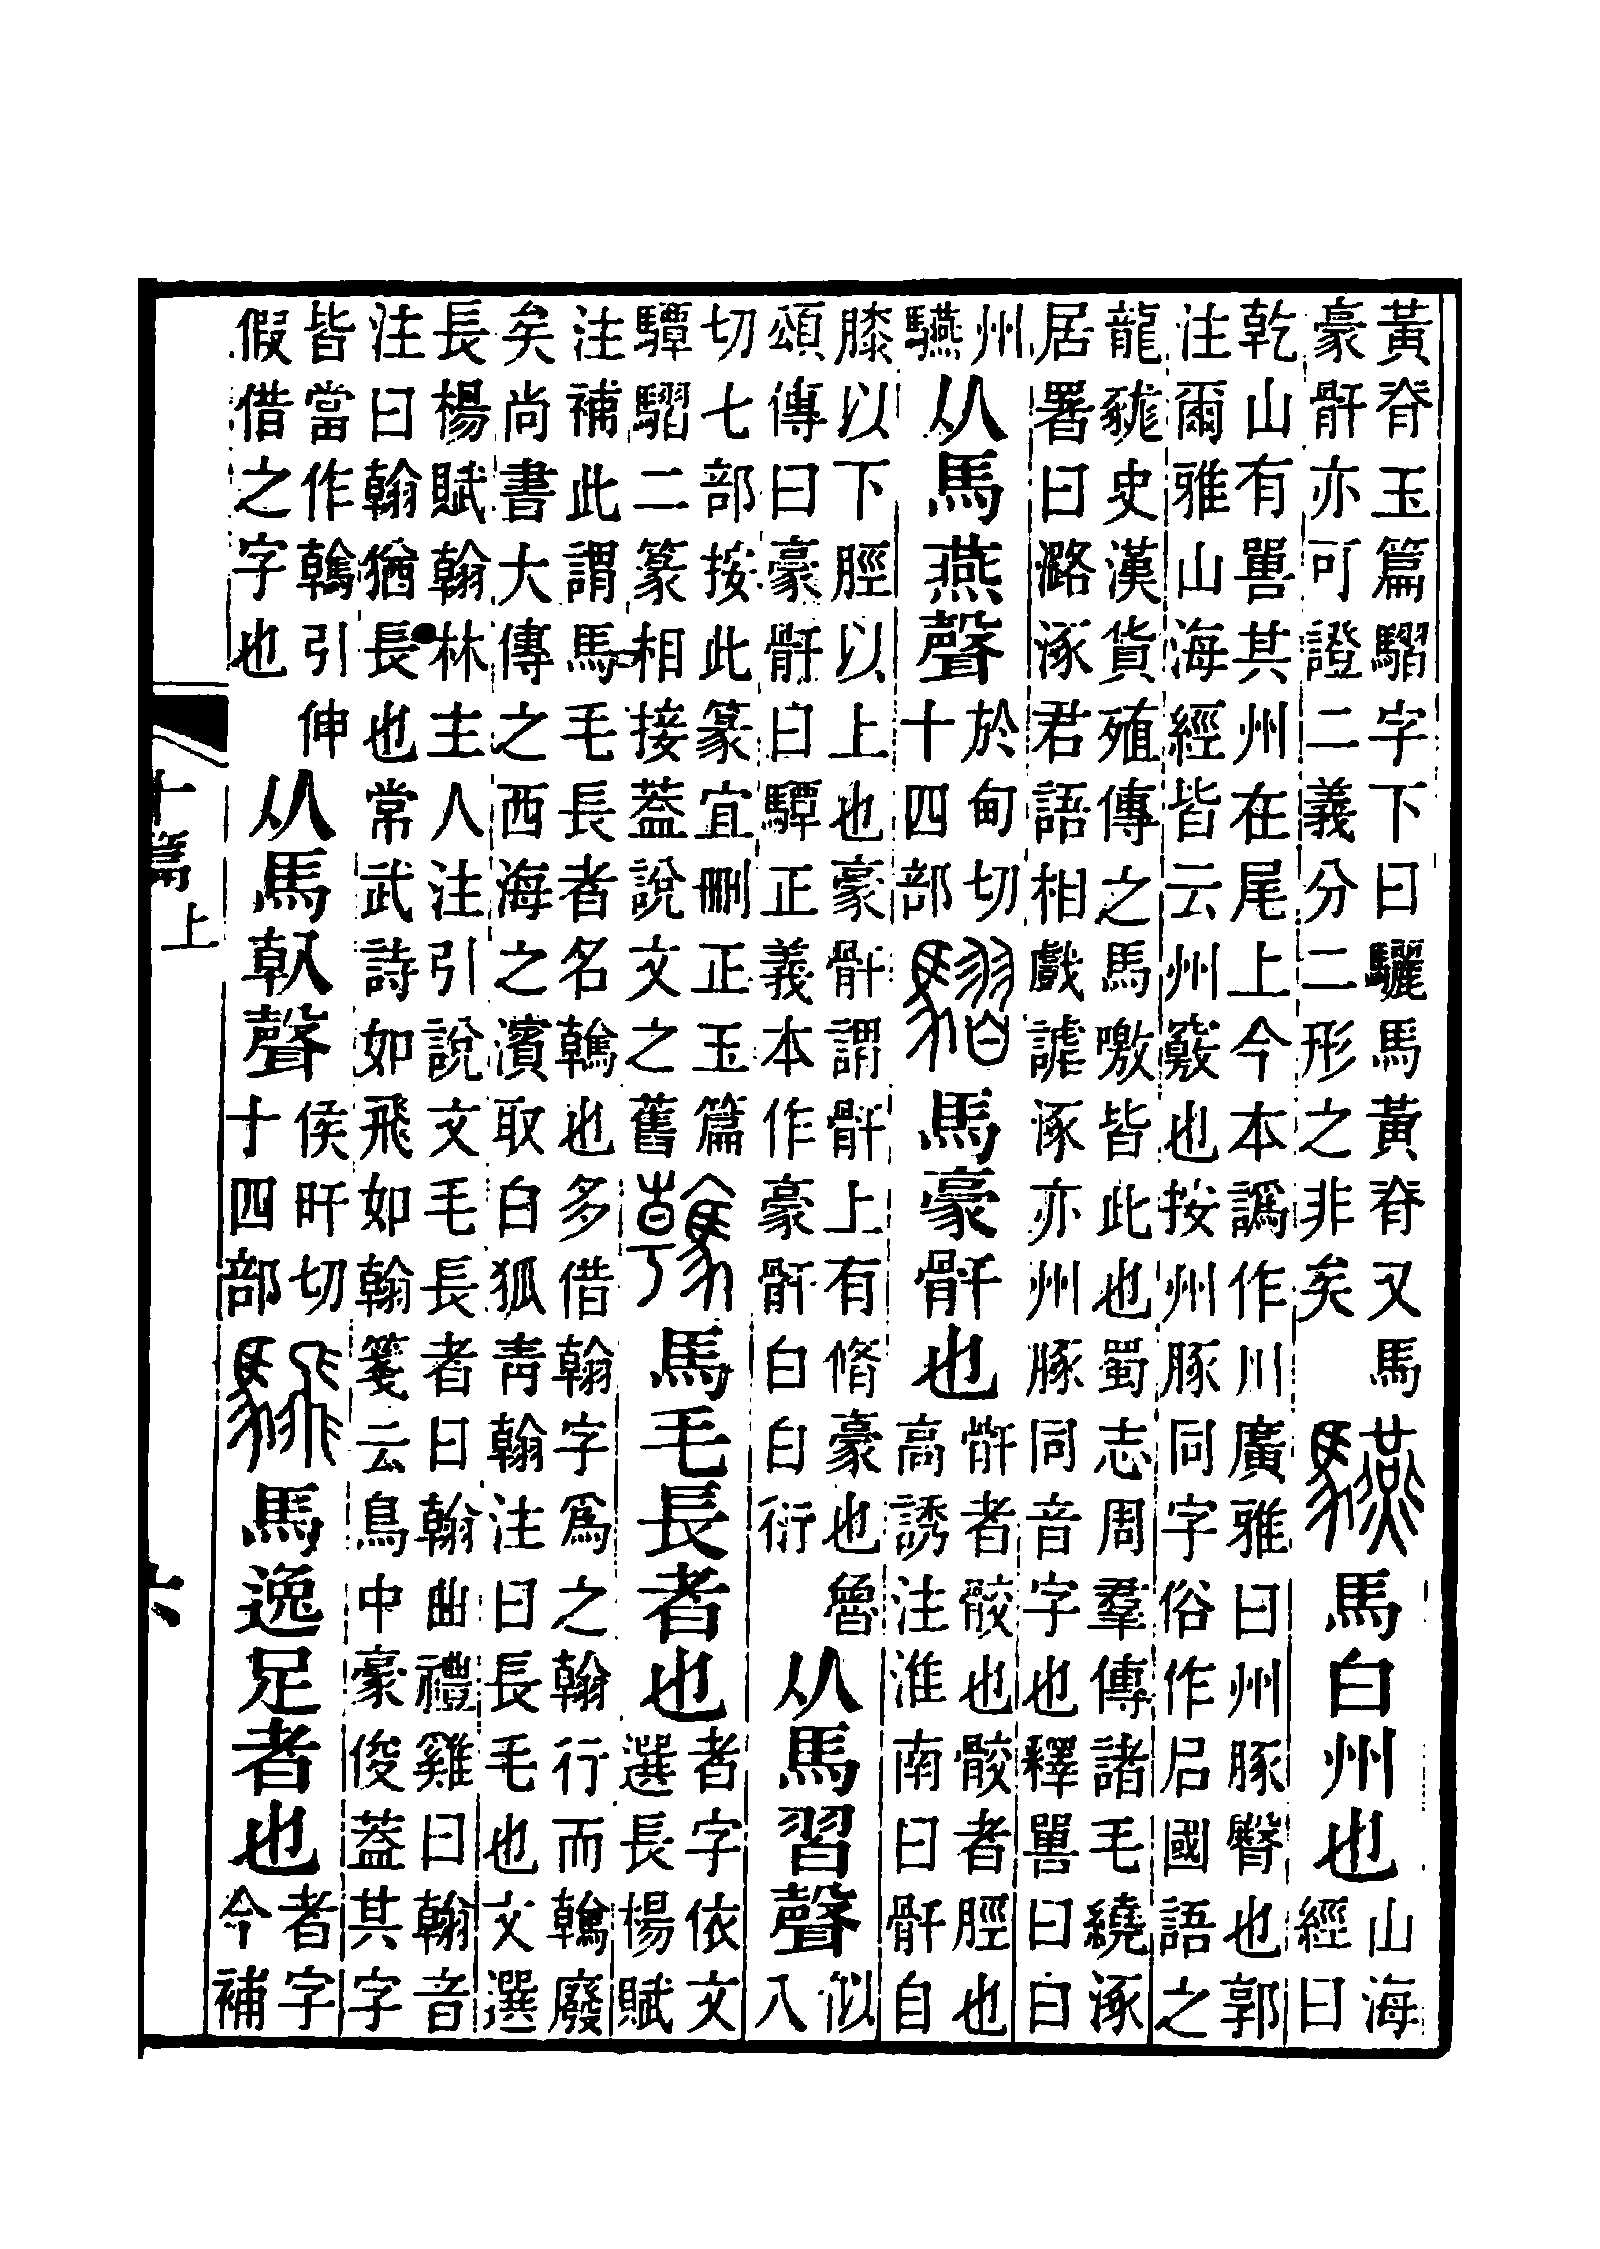 黃脊玉篇騽字下曰驪馬黃脊又馬
豪骭亦可證二義分二形之非矣
驠馬白州也
山海
經曰
乾山有嘼其州在尾上今本譌作川廣雅曰州豚臀也郭
注爾雅山海經皆云州竅也按州豚同字俗作𡰪國語之
龍史漢貨殖傳之馬噭皆此也蜀志周羣傳諸毛繞涿
居署曰潞涿君語相戲謔涿亦州豚同音字也釋嘼曰白
州
驠
从馬燕聲
於甸切
十四部
騽馬豪骭也
骭者骹也骹者脛也
高誘注淮南曰骭自
膝以下脛以上也豪骭謂骭上有脩豪也魯
頌傳曰豪骭曰驔正義本作豪骭白白衍
从馬習聲
似
入
切七部按此篆宜刪正玉篇
驔騽二篆相接蓋說文之舊
䮧馬毛長者也
者字依文
選長楊賦
注補此謂馬毛長者名䮧也多借翰字爲之翰行而䮧廢
矣尚書大傳之西海之濱取白狐青翰注曰長毛也文選
長楊賦翰林主人注引說文毛長者曰翰曲禮雞曰翰音
注曰翰猶長也常武詩如飛如翰箋云鳥中豪俊蓋其字
皆當作䮧引伸
假借之字也
从馬倝聲
侯旰切
十四部
馬逸足者也
者字
今補
十篇上
六